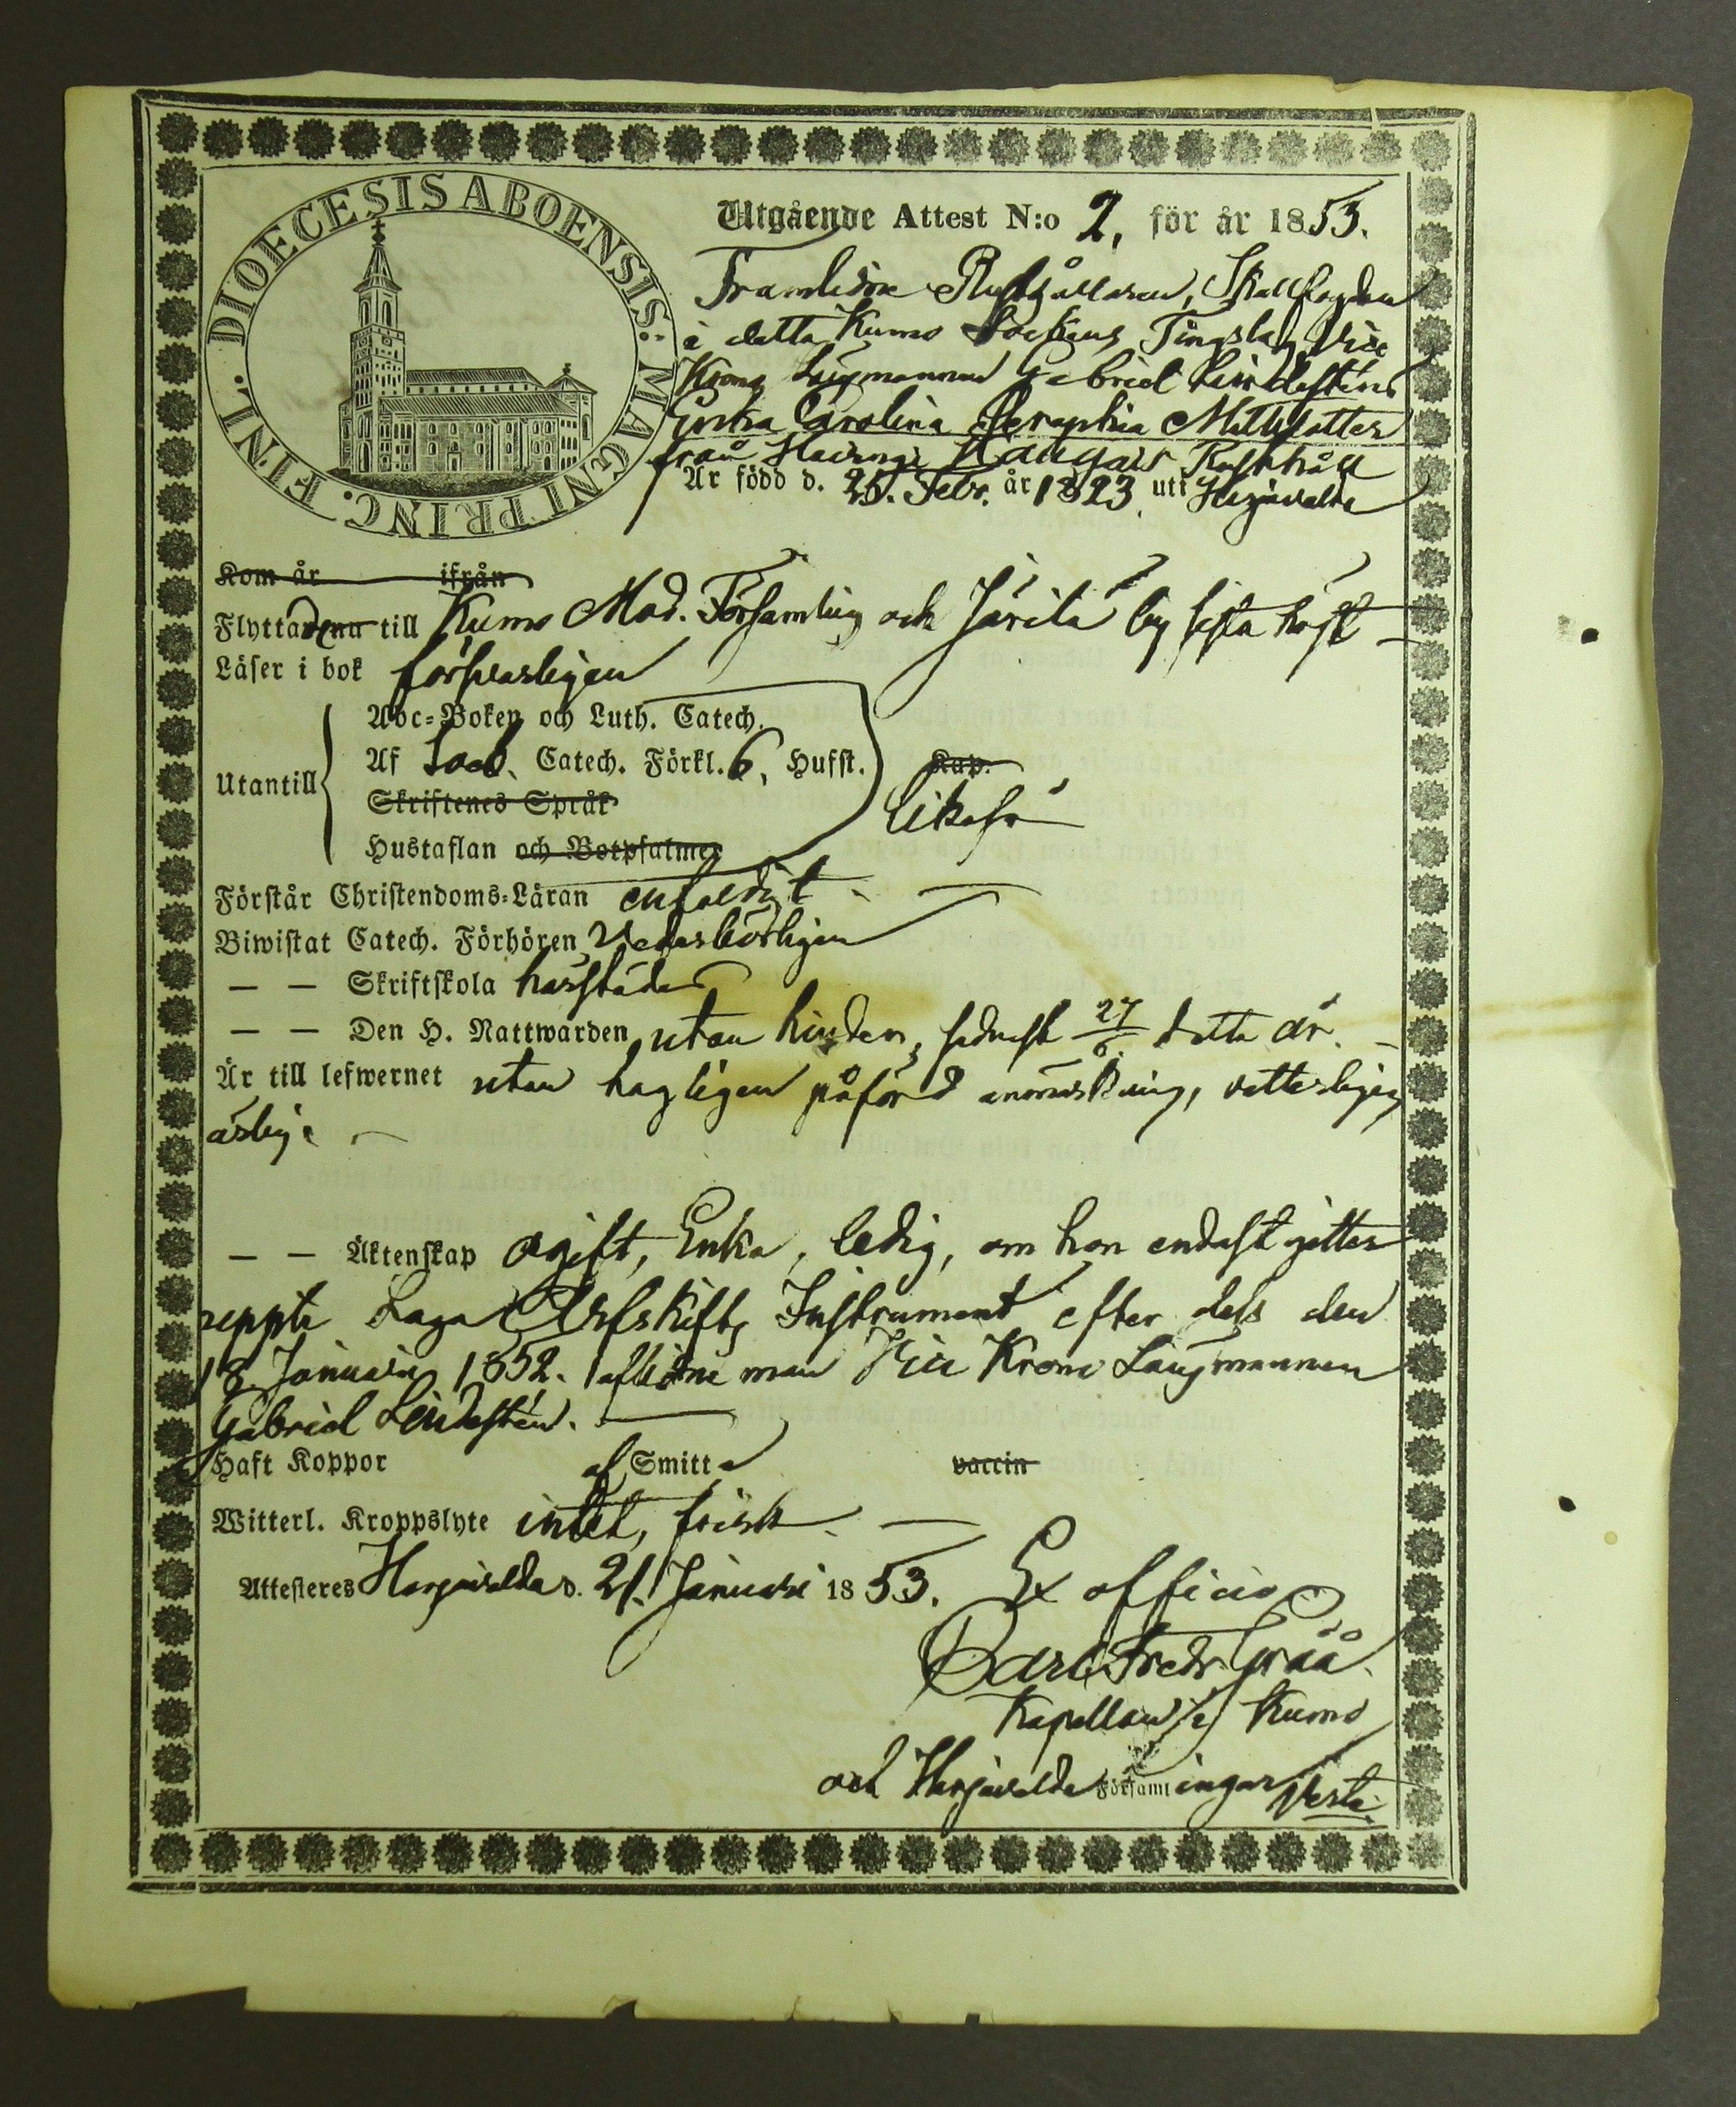 DIOECESIS ABOENSIS: MAGNI PRINC. FINL.
Utgående Attest N:o 2, för år 1853.
Framlidne Rusthållaren, Skallfogden
i detta Kumo Sockens Tingslag Vice
Krono Länsmannen Gabriel Lindesténs
Enka Carolina Seraphia
från Kaugars Rusthåll
Är född d. 25. Febr. år 1823. uti Harjavalda
Kom år ifrån
Flyttade nu till Kumo Mod. Församling och Järilä by sista höst
Läser i bok försvarligen
Utantill
Abc-Boken och Luth. Catech.
Af Catech. Förkl. 6, Hufst. Kap.
Skriftenes Språk likaså
Hustaflan och Botpsalmer
Förstår Christendoms-Läran enfaldigt
Biwistat Catech. Förhören vederbörligen
— — Skriftskola härstädes
— — Den H. Nattwarden utan hinder, sednast detta år.
Är till lefwernet utan lagligen påförd anmärkning, vetterligen
ärlig.
— — Äktenskap ogift, Enka, ledig, om hon endast gitter
uppte Laga Arfskifts Instrument efter dess den
18 Januarii 1852. aflidne man Vice Krono Länsmannen
Gabriel Lindestén.
Haft Koppor af Smitta vaccin
Witterl. Kroppslyte intet, frisk
Attesteres Harjavalda d. 21. Januari 1853. Ex officio
Carl Fredr. Gråå
Kapellan i Kumo
och Harjavalda Församlingar